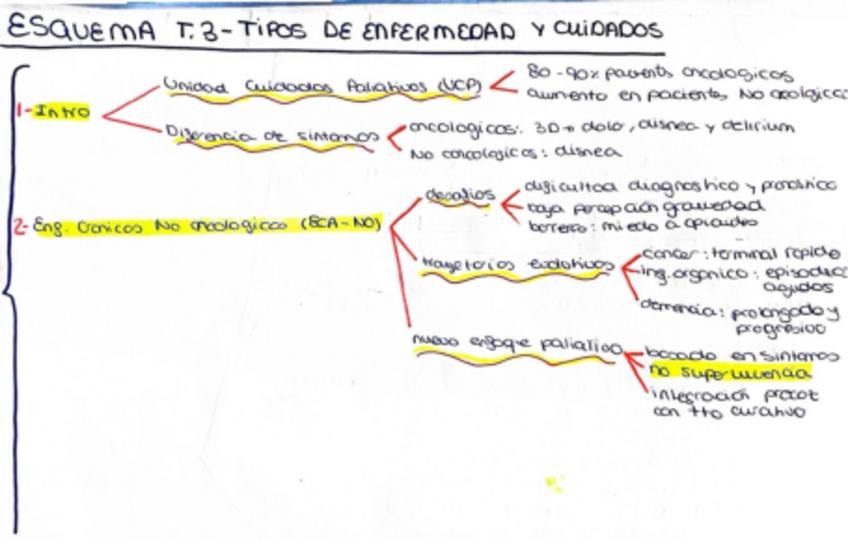 ESQUEMA T.3 - TIPOS DE ENFERMEDAD Y CUIDADOS
1- Intro
Unidad Cuidados Paliativos (UCP)
80-90% pacients oncologicos
aumento en pacients No oncologicos
Diferencia de sintomas
oncologicos: 3D → dolor, disnea y delirium
No oncologicos: disnea
2- Enf. Cronicas No oncologicas (ECA-NO)
desafios
dificultad diagnostico y pronostico
baja percepción gravedad
barrera: miedo a opioides
trayetorias evolutivas
cancer: terminal rapido
inf. organico: episodios
agudos
demencia: prolongado y
progresivo
nuevo enfoque paliativo
basado en sintomas
no supervivencia
integración precoz
con tto curativo